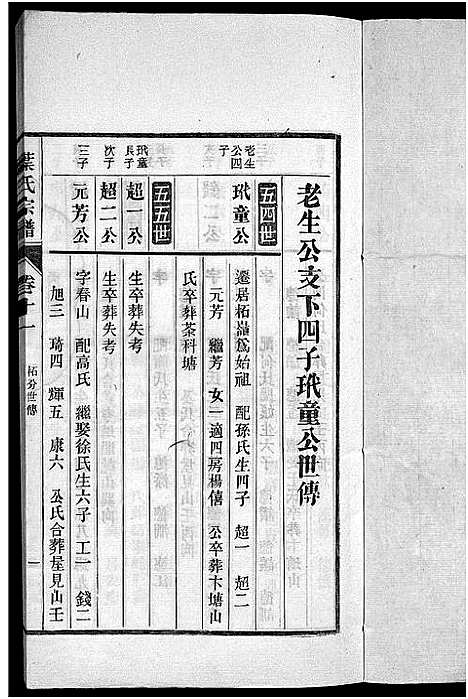 老生公支下四子玳童公世傳
五四世
老生公四子
玳童公
遷居柘嶴為始祖 配孫氏生四子 超一 超二
元芳 繼芳 女一適四房楊僖 公卒葬卞塘山
氏卒葬茶科塘
五五世
玳童長子
超一公
生卒葬失考
次子
超二公
生卒葬失考
三子
元芳公
字春山 配高氏 繼娶徐氏生六子 工一 錢二
旭三 琦四 輝五 康六 公氏合葬屋見山壬
葉氏宗譜
卷十一
柘分世傳
一